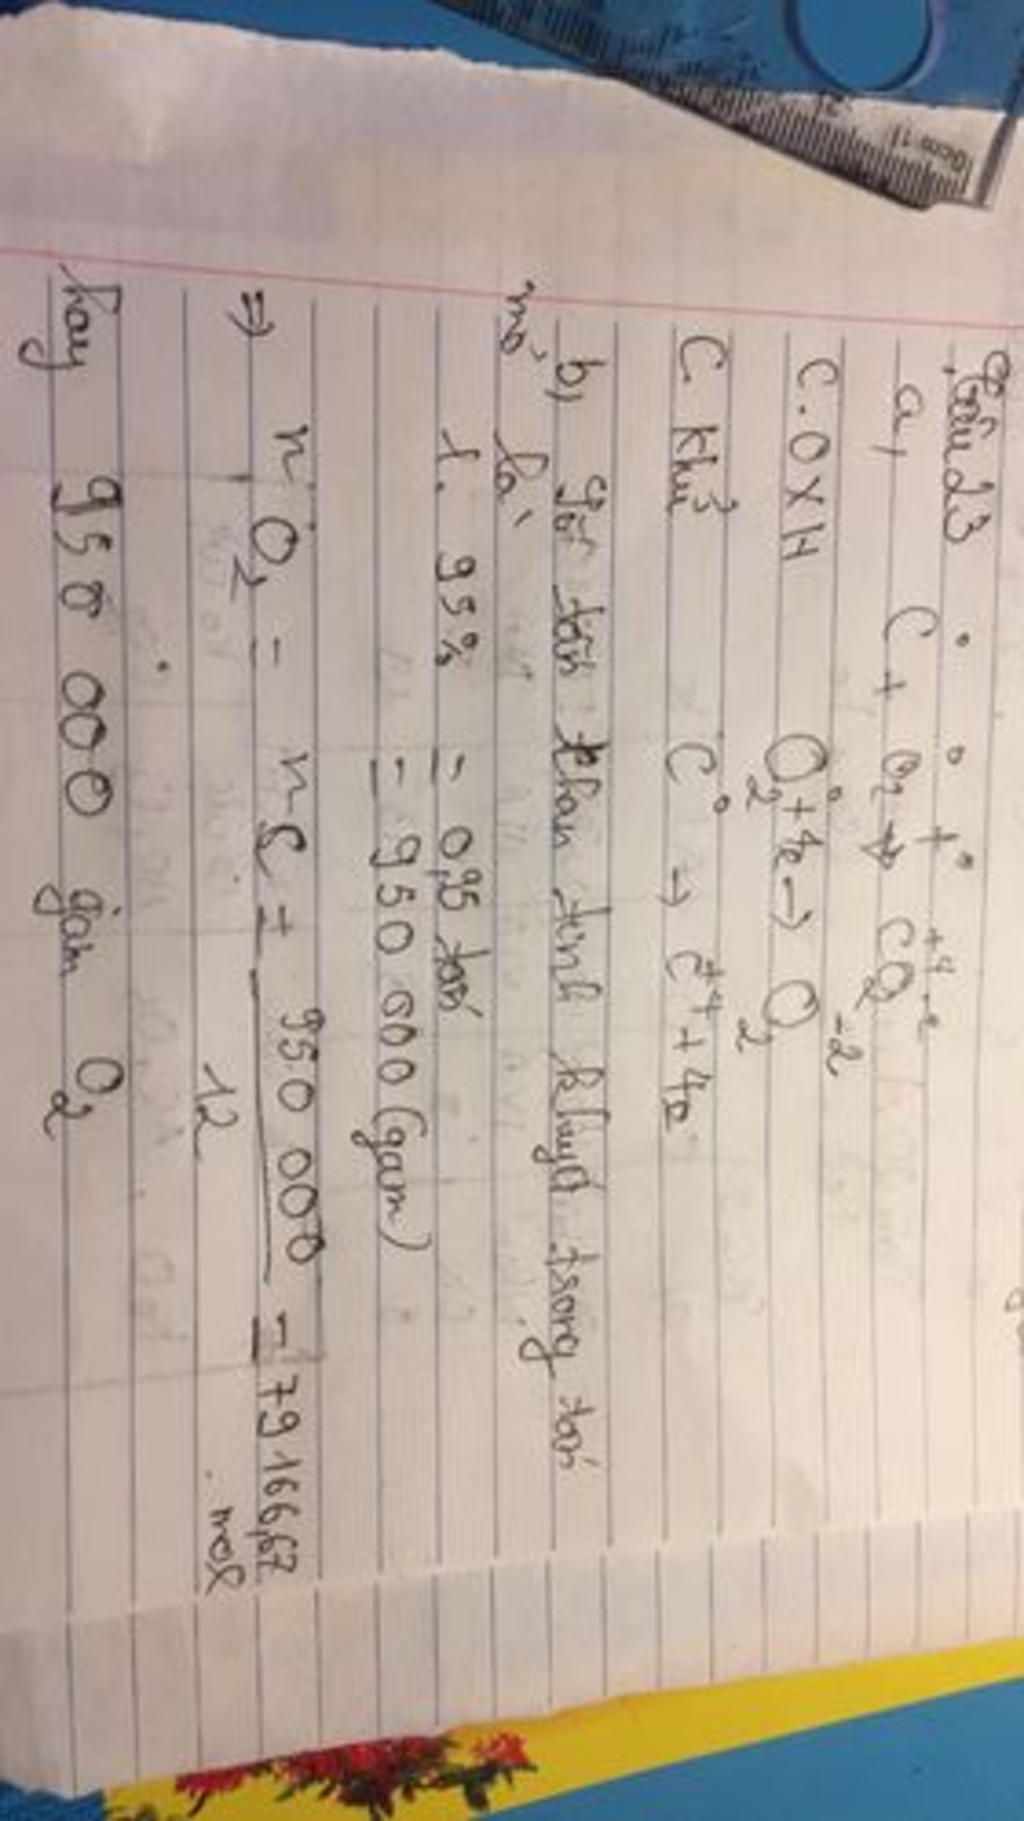 Câu 23
0 0 t° +4 -2
a, C + O2 → CO2
C.OXH O2⁰ + 4e → O2⁻²
C. khử C⁰ → C⁺⁴ + 4e
b, Gọi tấn than tinh khuyết trong tấn
mỏ là
1. 95% = 0,95 tấn
= 950 000 (gam)
⇒ nO2 = nC = 950 000 / 12 = 79166,67 mol
hay 950 000 gam O2
10cm 11